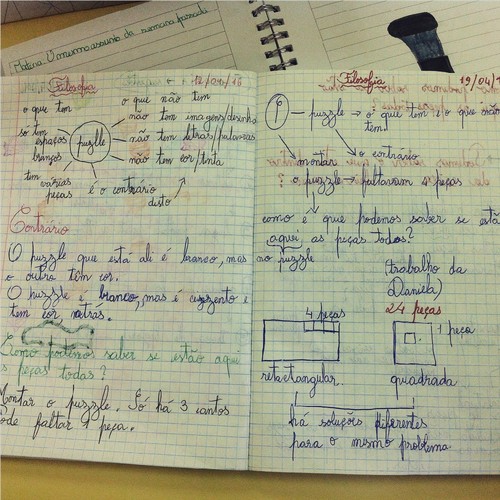 Matéria: O mesmo assunto da semana passada
Filosofia 12/04/16
o que tem
o que não tem
não tem imagens/desenho
só tem espaços brancos
puzlle
não tem letras/palavras
não tem cor/tinta
tem várias peças
é o contrário disto
Contrário
O puzzle que está ali é branco, mas
o outro têm cor.
O puzzle é branco, mas é cizzento e
tem cor, netras.
Como podemos saber se estão aqui
as peças todas?
Montar o puzzle. Só há 3 cantos
Pode faltar 1 peça.
Filosofia 19/04/1
puzzle → o que tem e o que não
tem!
montar
o contrário
o puzzle → faltaram 4 peças
como é que podemos saber se estã
aqui as peças todas?
no puzzle
(trabalho da
Daniela)
24 peças
4 peças
1 peça
retactangular.
quadrada
há soluções diferentes
para o mesmo problema.